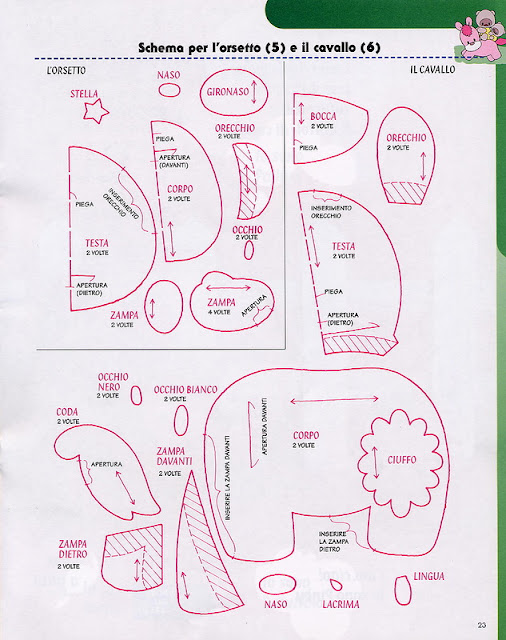 Schema per l'orsetto (5) e il cavallo (6)
L'ORSETTO
STELLA
NASO
GIRONASO
PIEGA
APERTURA
(DAVANTI)
CORPO
2 VOLTE
ORECCHIO
2 VOLTE
INSERIMENTO
ORECCHIO
PIEGA
TESTA
2 VOLTE
APERTURA
(DIETRO)
OCCHIO
2 VOLTE
ZAMPA
2 VOLTE
ZAMPA
4 VOLTE
APERTURA
IL CAVALLO
BOCCA
2 VOLTE
PIEGA
ORECCHIO
2 VOLTE
INSERIMENTO
ORECCHIO
TESTA
2 VOLTE
PIEGA
APERTURA
(DIETRO)
OCCHIO
NERO
2 VOLTE
OCCHIO BIANCO
2 VOLTE
CODA
2 VOLTE
APERTURA
ZAMPA
DAVANTI
2 VOLTE
INSERIRE LA ZAMPA DAVANTI
APERTURA DAVANTI
CORPO
2 VOLTE
CIUFFO
ZAMPA
DIETRO
2 VOLTE
INSERIRE
LA ZAMPA
DIETRO
NASO
LACRIMA
LINGUA
23